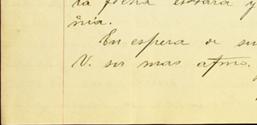 la fecha estará y
ñia.
En espera de su
V. su mas atmo.